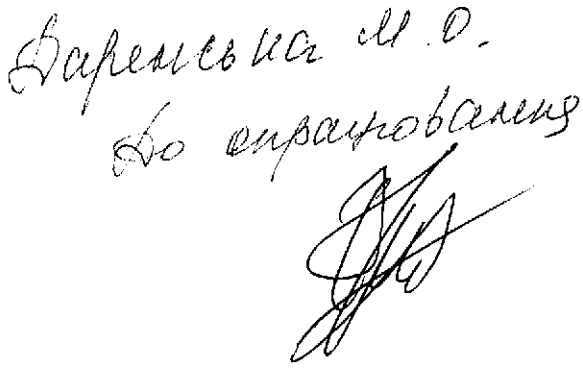 Даренська М. О.
До опрацювання